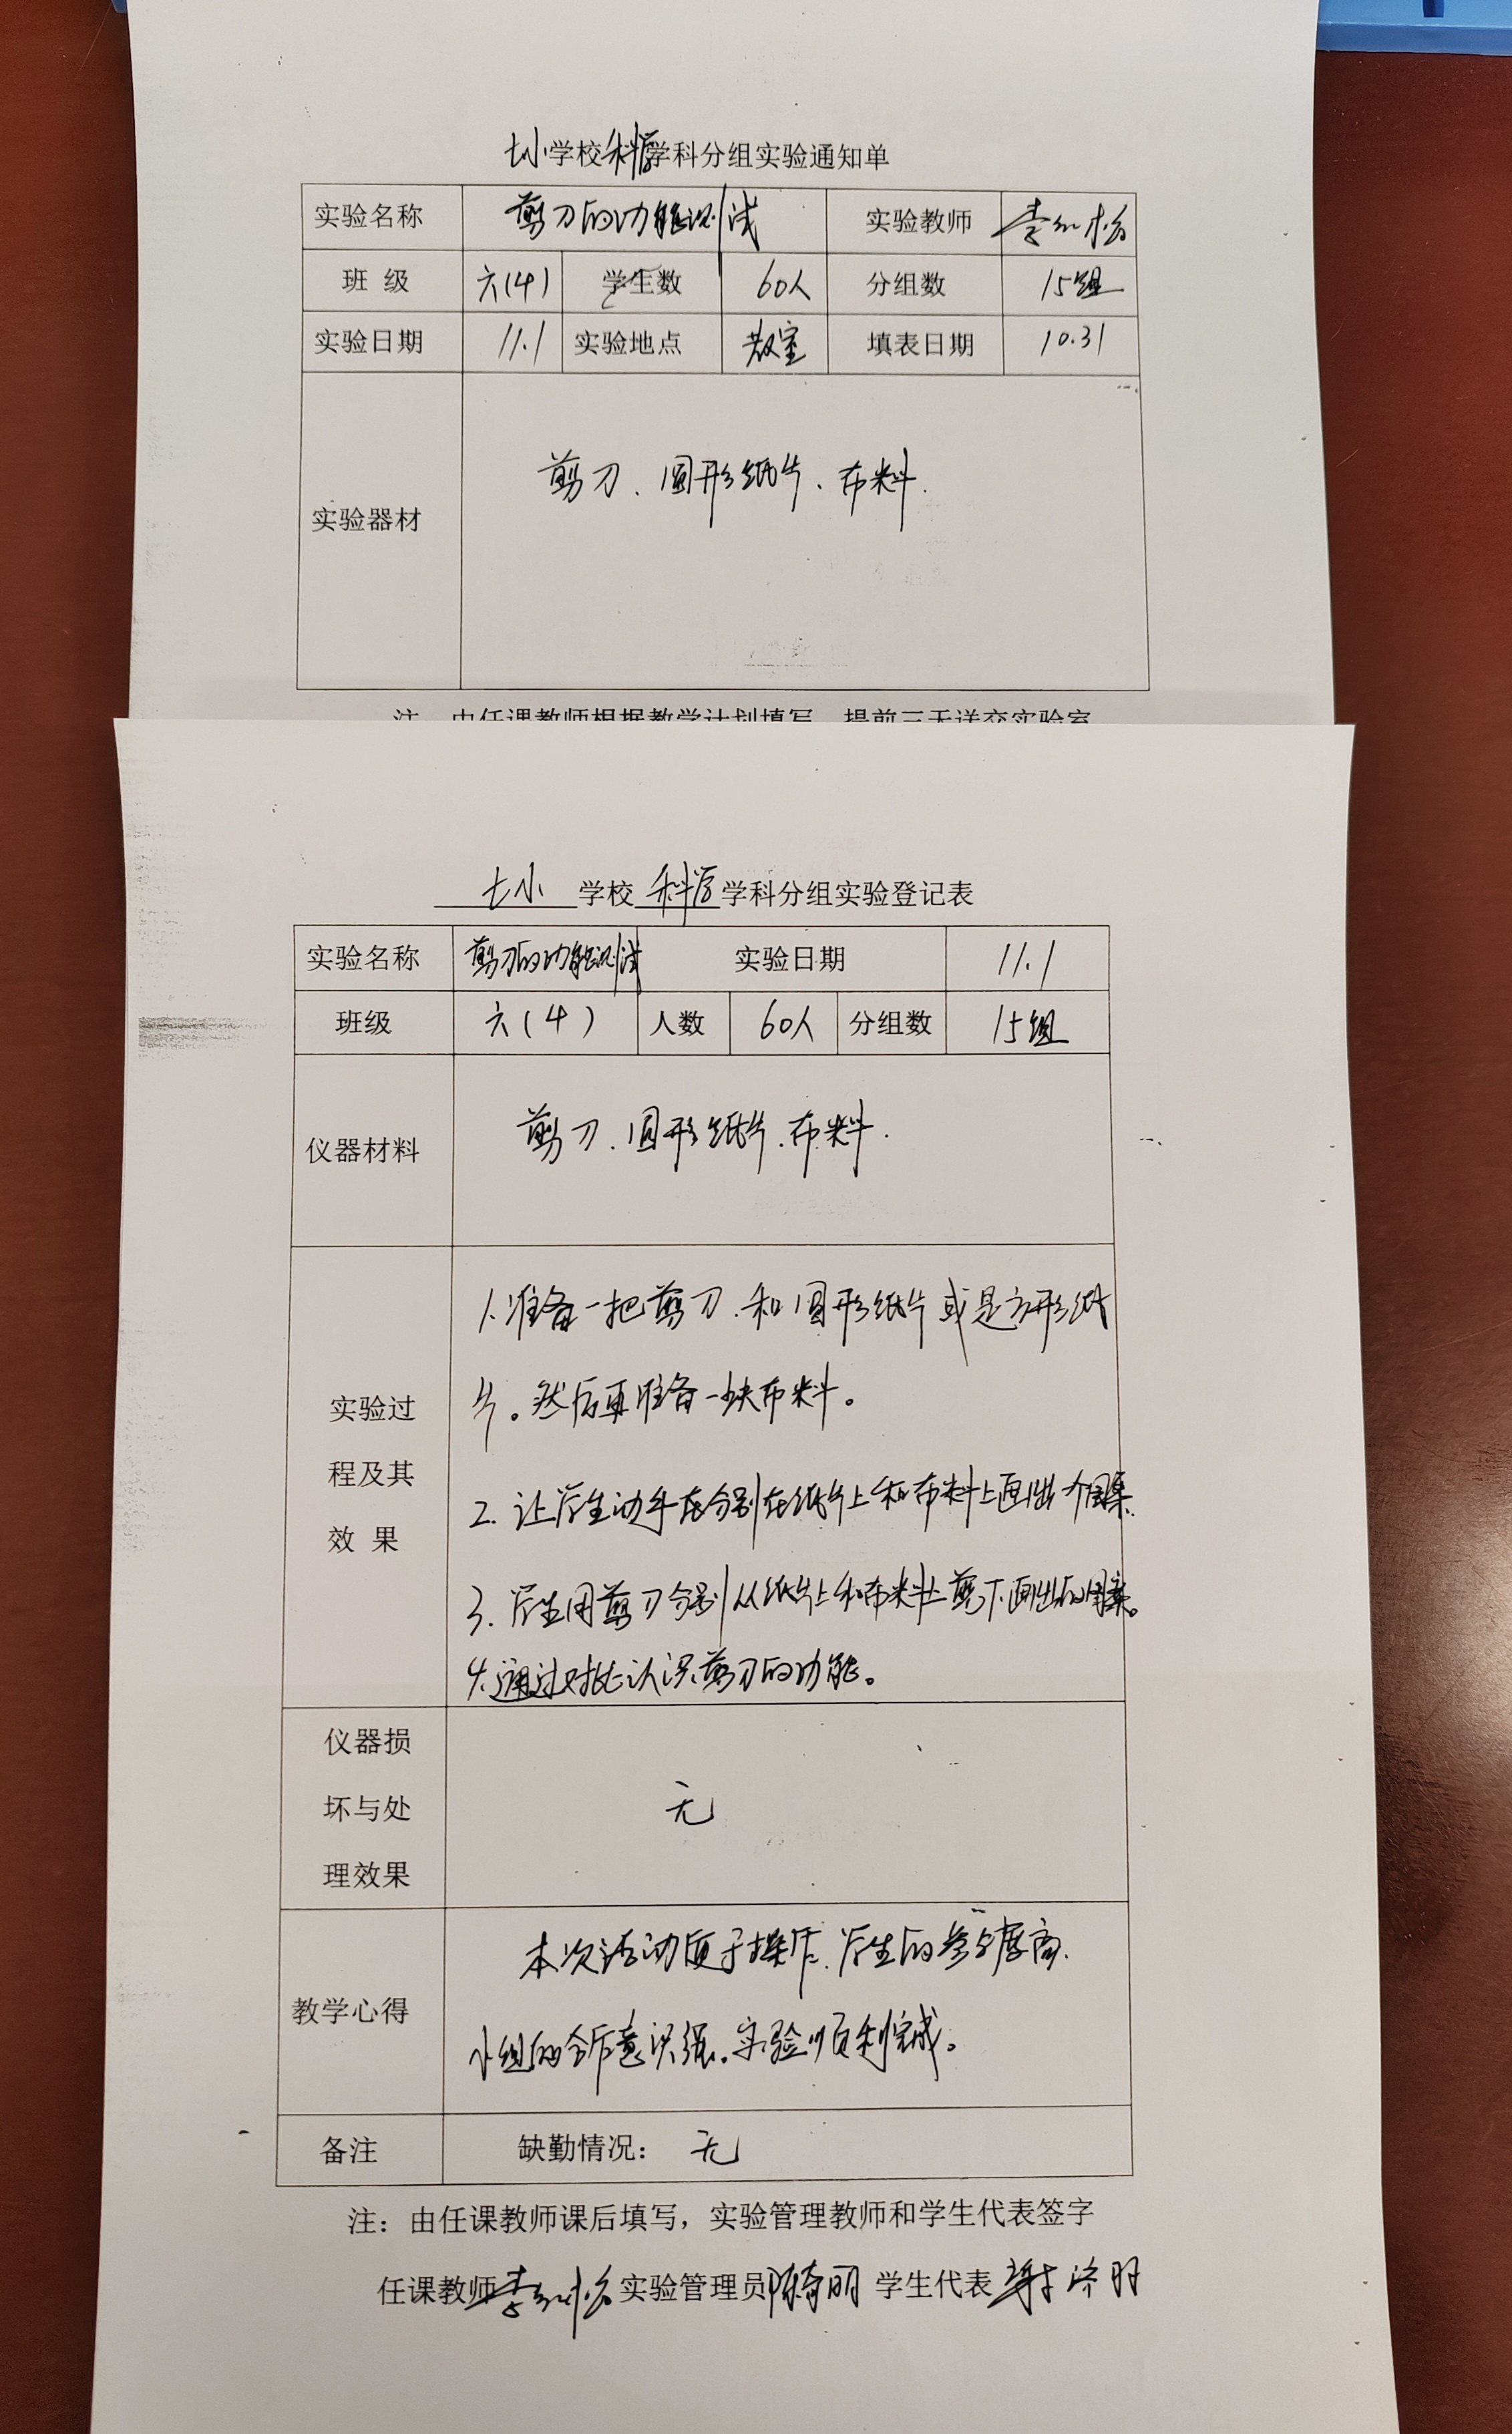 七小学校科学学科分组实验通知单
实验名称 剪刀的功能测试 实验教师
班 级 六(4) 学生数 60人 分组数 15组
实验日期 11.1 实验地点 教室 填表日期 10.31
实验器材 剪刀、圆形纸片、布料.
注 由任课教师根据教学计划填写 提前三天送交实验室
七小 学校 科学 学科分组实验登记表
实验名称 剪刀的功能测试 实验日期 11.1
班级 六(4) 人数 60人 分组数 15组
仪器材料 剪刀、圆形纸片、布料.
实验过
程及其
效 果
1.准备一把剪刀、和圆形纸片或是方形纸
片。然后再准备一块布料。
2. 让学生动手在分别在纸片上和布料上画出个图案.
3. 学生用剪刀分别从纸片上和布料上剪下画出的图案。
4.通过对比认识剪刀的功能。
仪器损
坏与处
理效果
无
教学心得
本次活动便于操作、学生的参与度高、
小组的合作意识强。实验顺利完成。
备注 缺勤情况： 无
注：由任课教师课后填写，实验管理教师和学生代表签字
任课教师 实验管理员 学生代表